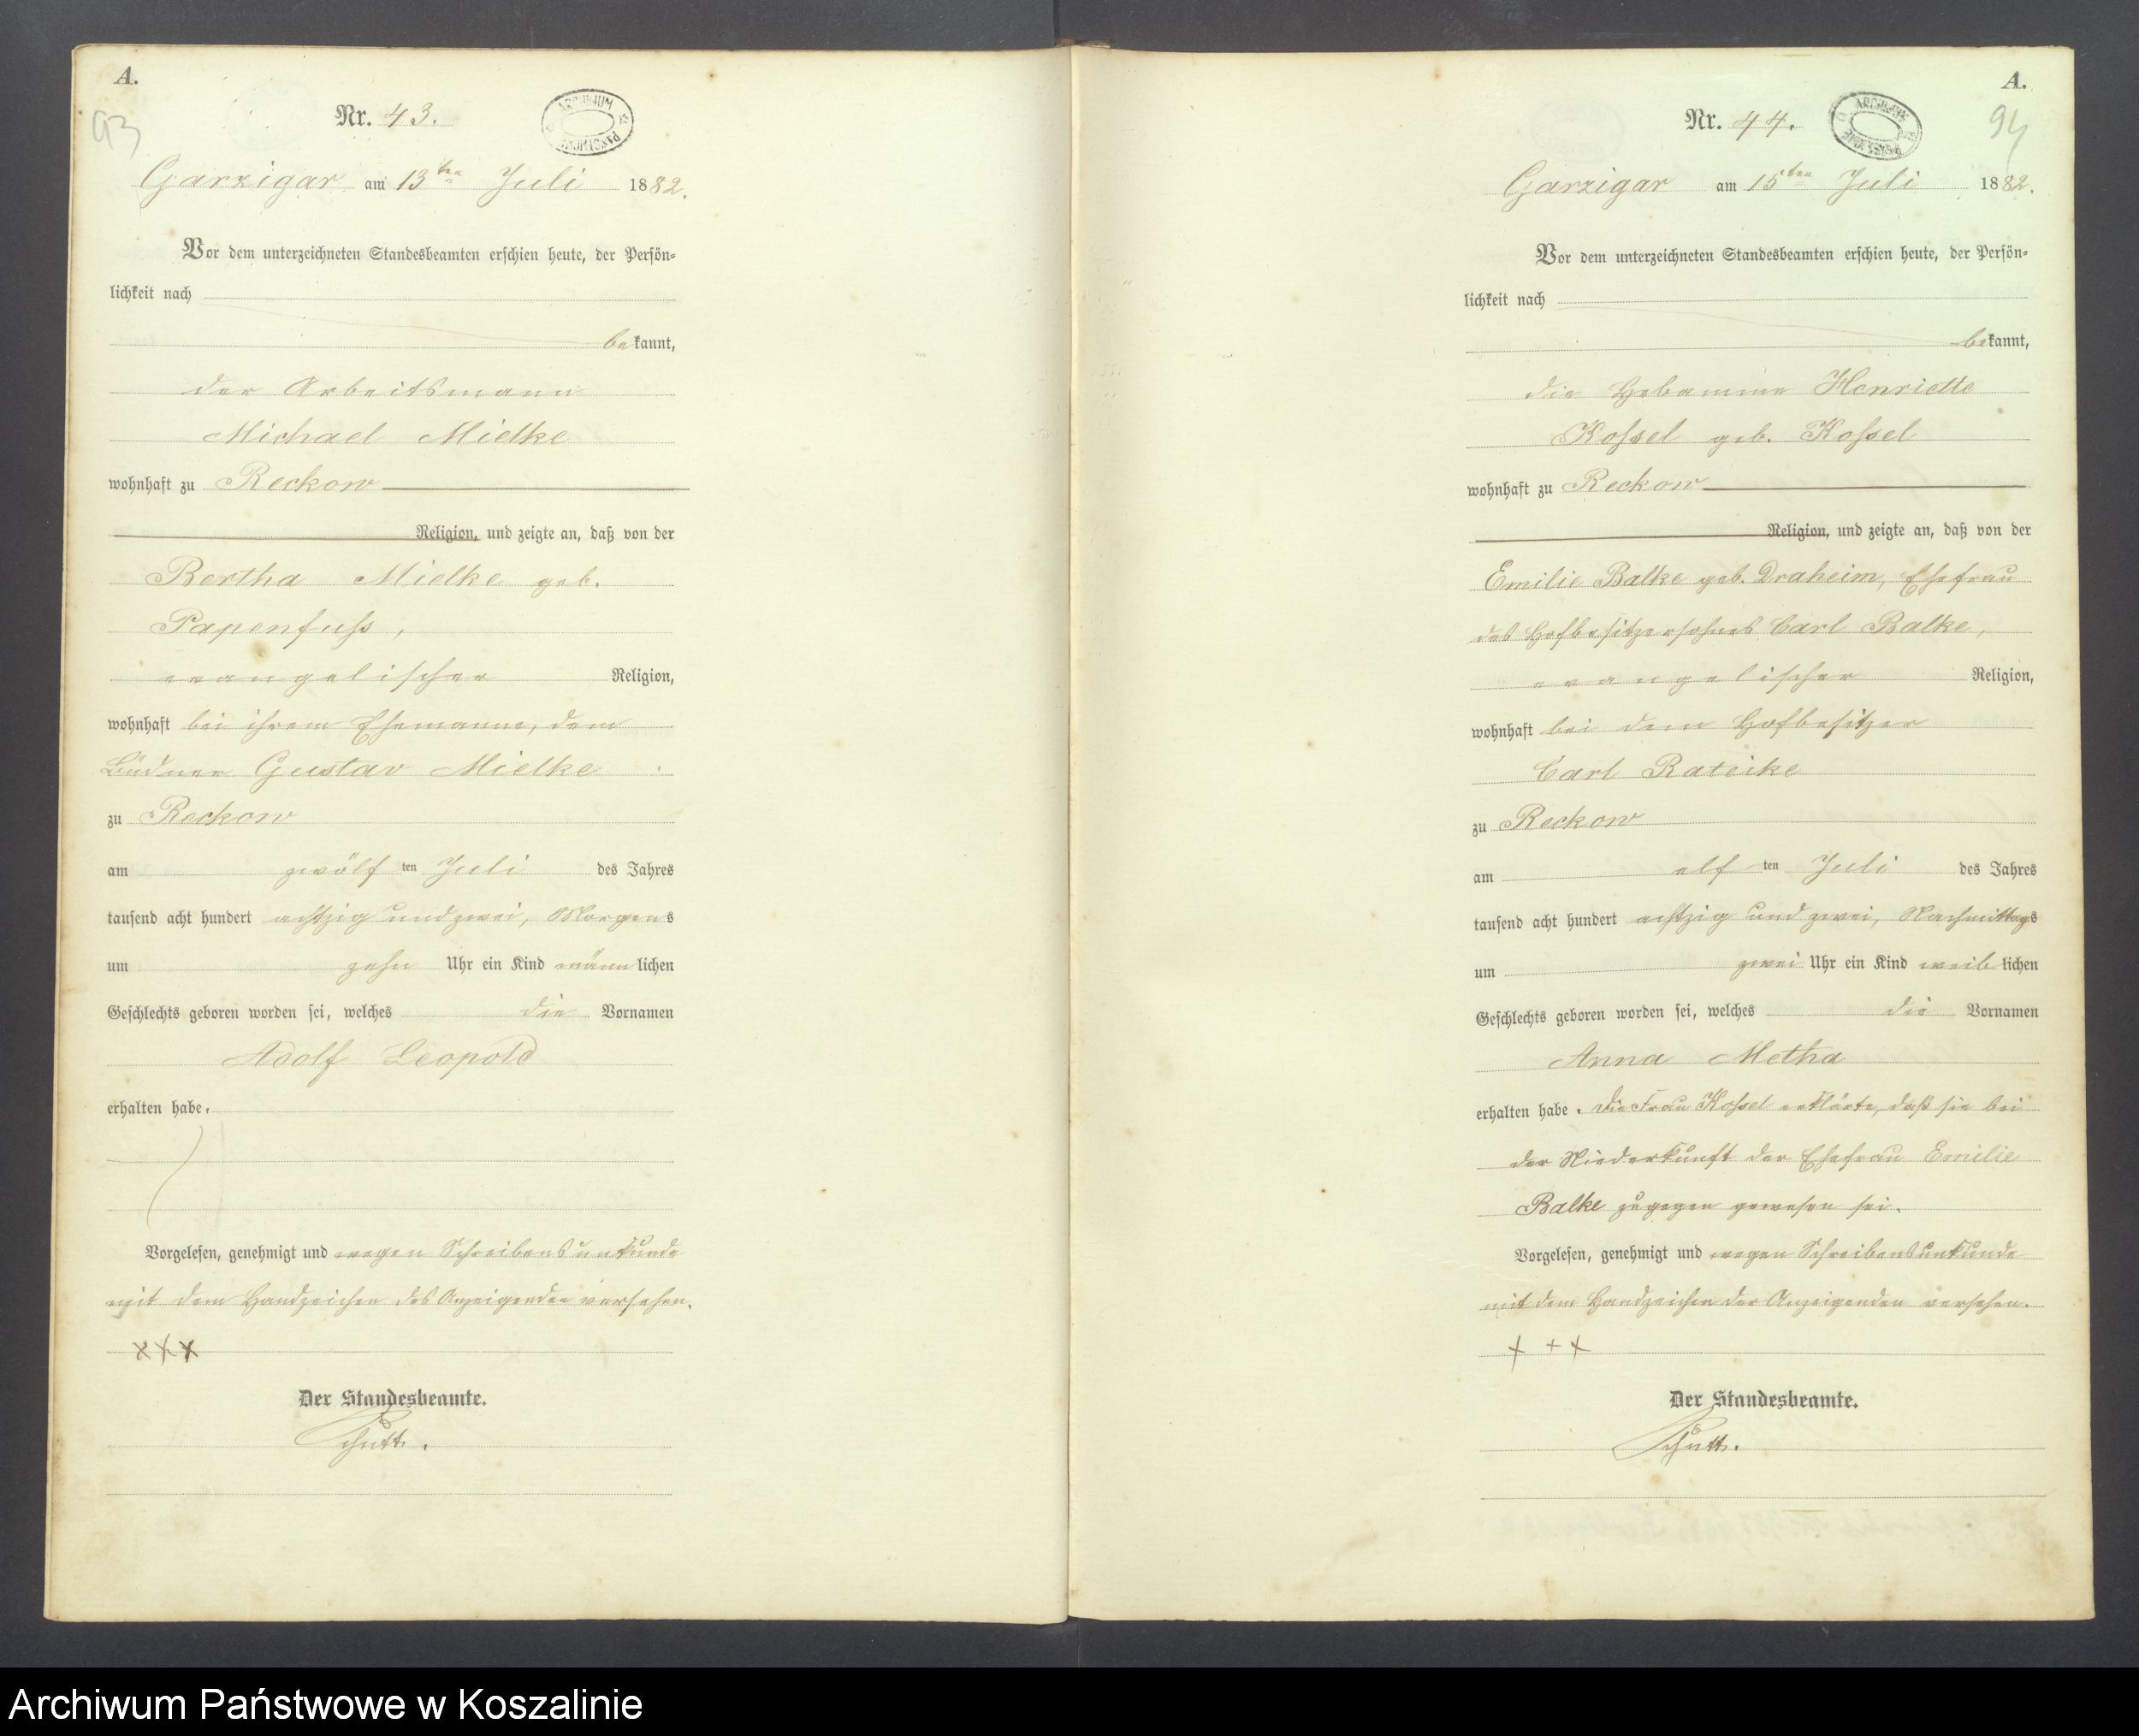 A.
93
Nr. 43.
ARCHIWUM PAŃSTWOWE
Garzigar am 13ten Juli 1882.
Vor dem unterzeichneten Standesbeamten erschien heute, der Persön-
lichkeit nach
bekannt,
der Arbeitsmann
Michael Mielke
wohnhaft zu Reckow
Religion, und zeigte an, daß von der
Bertha Mielke geb.
Papenfuß,
evangelischer Religion,
wohnhaft bei ihrem Ehemanne, dem
Büdner Gustav Mielke
zu Reckow
am zwölf ten Juli des Jahres
tausend acht hundert achtzig und zwei, Morgens
um zehn Uhr ein Kind männlichen
Geschlechts geboren worden sei, welches die Vornamen
Adolf Leopold
erhalten habe.
Vorgelesen, genehmigt und wegen Schreibensunkunde
mit dem Handzeichen des Anzeigenden versehen.
xxx
Der Standesbeamte.
A.
94
Nr. 44.
ARCHIWUM PAŃSTWOWE
Garzigar am 15ten Juli 1882.
Vor dem unterzeichneten Standesbeamten erschien heute, der Persön-
lichkeit nach
bekannt,
die Hebamme Henriette
Koßel geb. Koßel
wohnhaft zu Reckow
Religion, und zeigte an, daß von der
Emilie Balke geb. Draheim, Ehefrau
des Hofbesitzersohnes Carl Balke,
evangelischer Religion,
wohnhaft bei dem Hofbesitzer
Carl Rateike
zu Reckow
am elf ten Juli des Jahres
tausend acht hundert achtzig und zwei, Nachmittags
um zwei Uhr ein Kind weiblichen
Geschlechts geboren worden sei, welches die Vornamen
Anna Metha
erhalten habe. Die Frau Koßel erklärte, daß sie bei
der Niederkunft der Ehefrau Emilie
Balke zugegen gewesen sei.
Vorgelesen, genehmigt und wegen Schreibensunkunde
mit dem Handzeichen der Anzeigenden versehen.
+ + +
Der Standesbeamte.
Archiwum Państwowe w Koszalinie